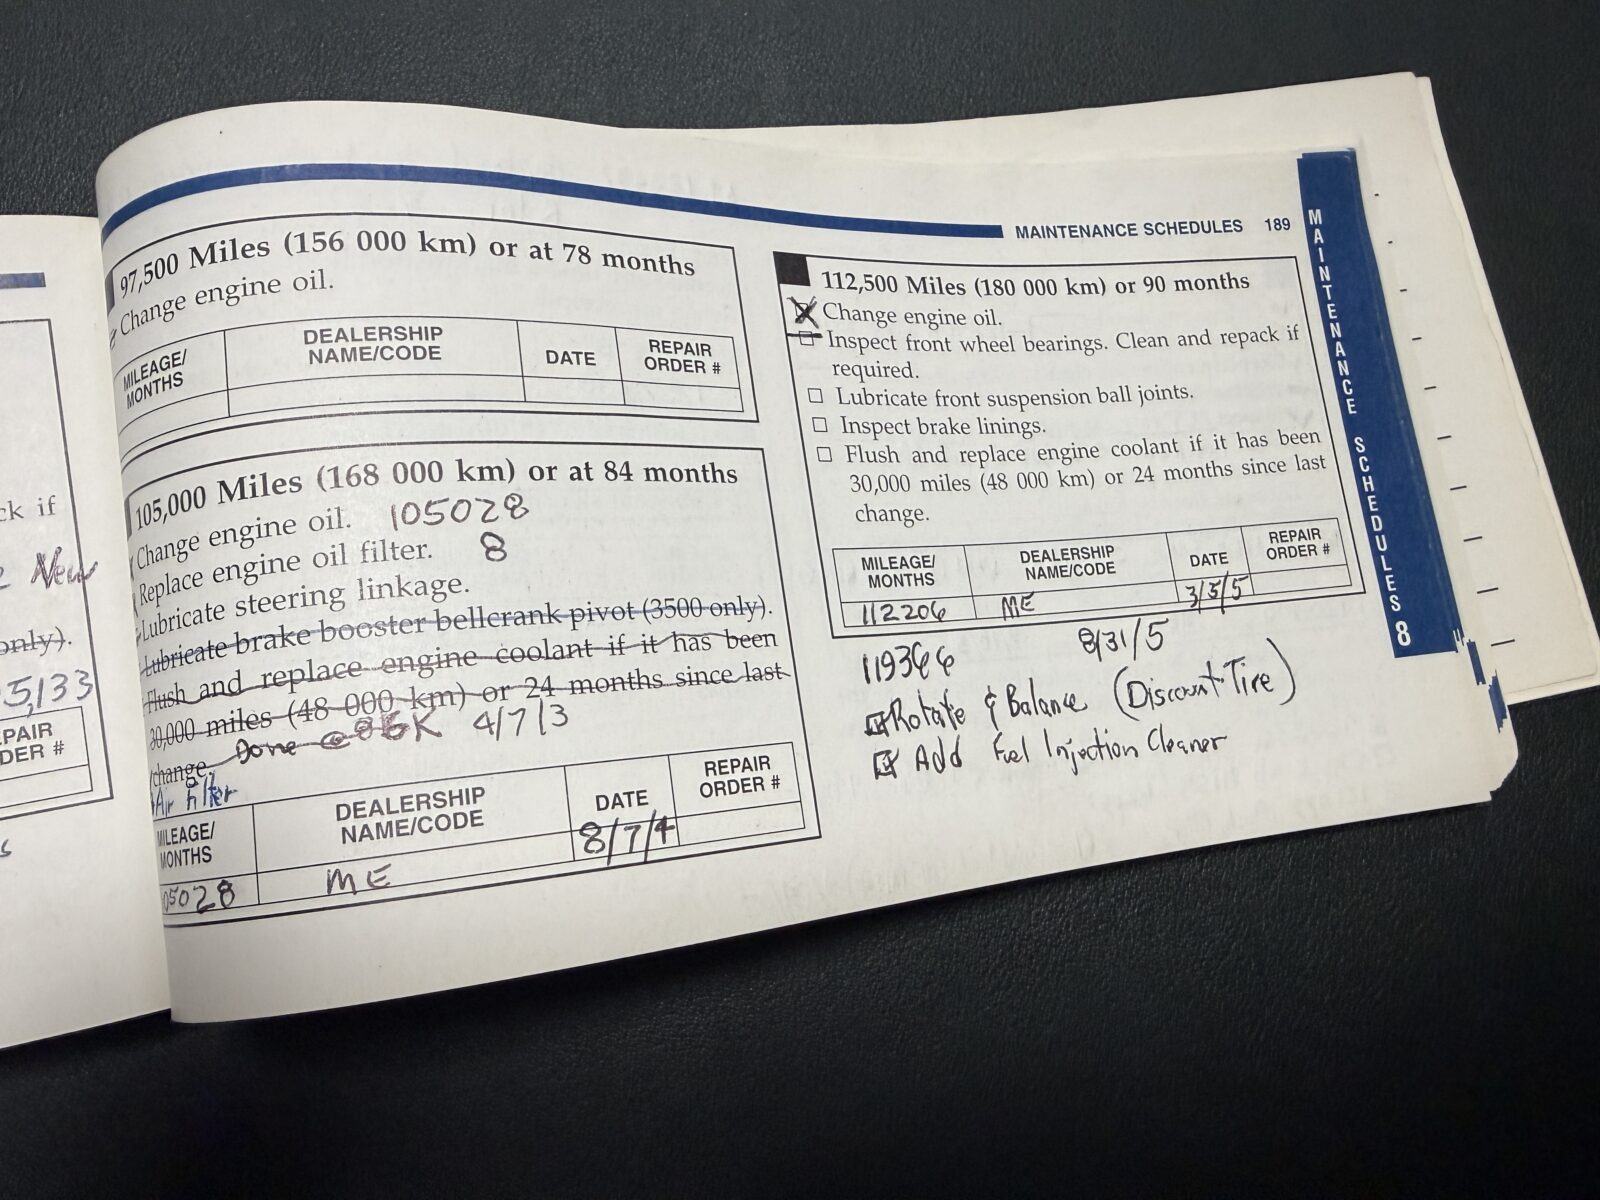 ck if
New
only).
5,133
REPAIR
ORDER #
MAINTENANCE SCHEDULES 189
97,500 Miles (156 000 km) or at 78 months
Change engine oil.
MILEAGE/
MONTHS
DEALERSHIP
NAME/CODE
DATE
REPAIR
ORDER #
105,000 Miles (168 000 km) or at 84 months
Change engine oil. 105028
Replace engine oil filter. 8
Lubricate steering linkage.
Lubricate brake booster bellcrank pivot (3500 only).
Flush and replace engine coolant if it has been
30,000 miles (48 000 km) or 24 months since last
change. Done @ 86K 4/7/3
Air filter
MILEAGE/
MONTHS
DEALERSHIP
NAME/CODE
DATE
REPAIR
ORDER #
05028
ME
8/7/4
112,500 Miles (180 000 km) or 90 months
Change engine oil.
Inspect front wheel bearings. Clean and repack if
required.
Lubricate front suspension ball joints.
Inspect brake linings.
Flush and replace engine coolant if it has been
30,000 miles (48 000 km) or 24 months since last
change.
MILEAGE/
MONTHS
DEALERSHIP
NAME/CODE
DATE
REPAIR
ORDER #
112206
ME
3/5/5
119366 8/31/5
Rotate & Balance (Discount Tire)
Add Fuel Injection Cleaner
MAINTENANCE SCHEDULES
8